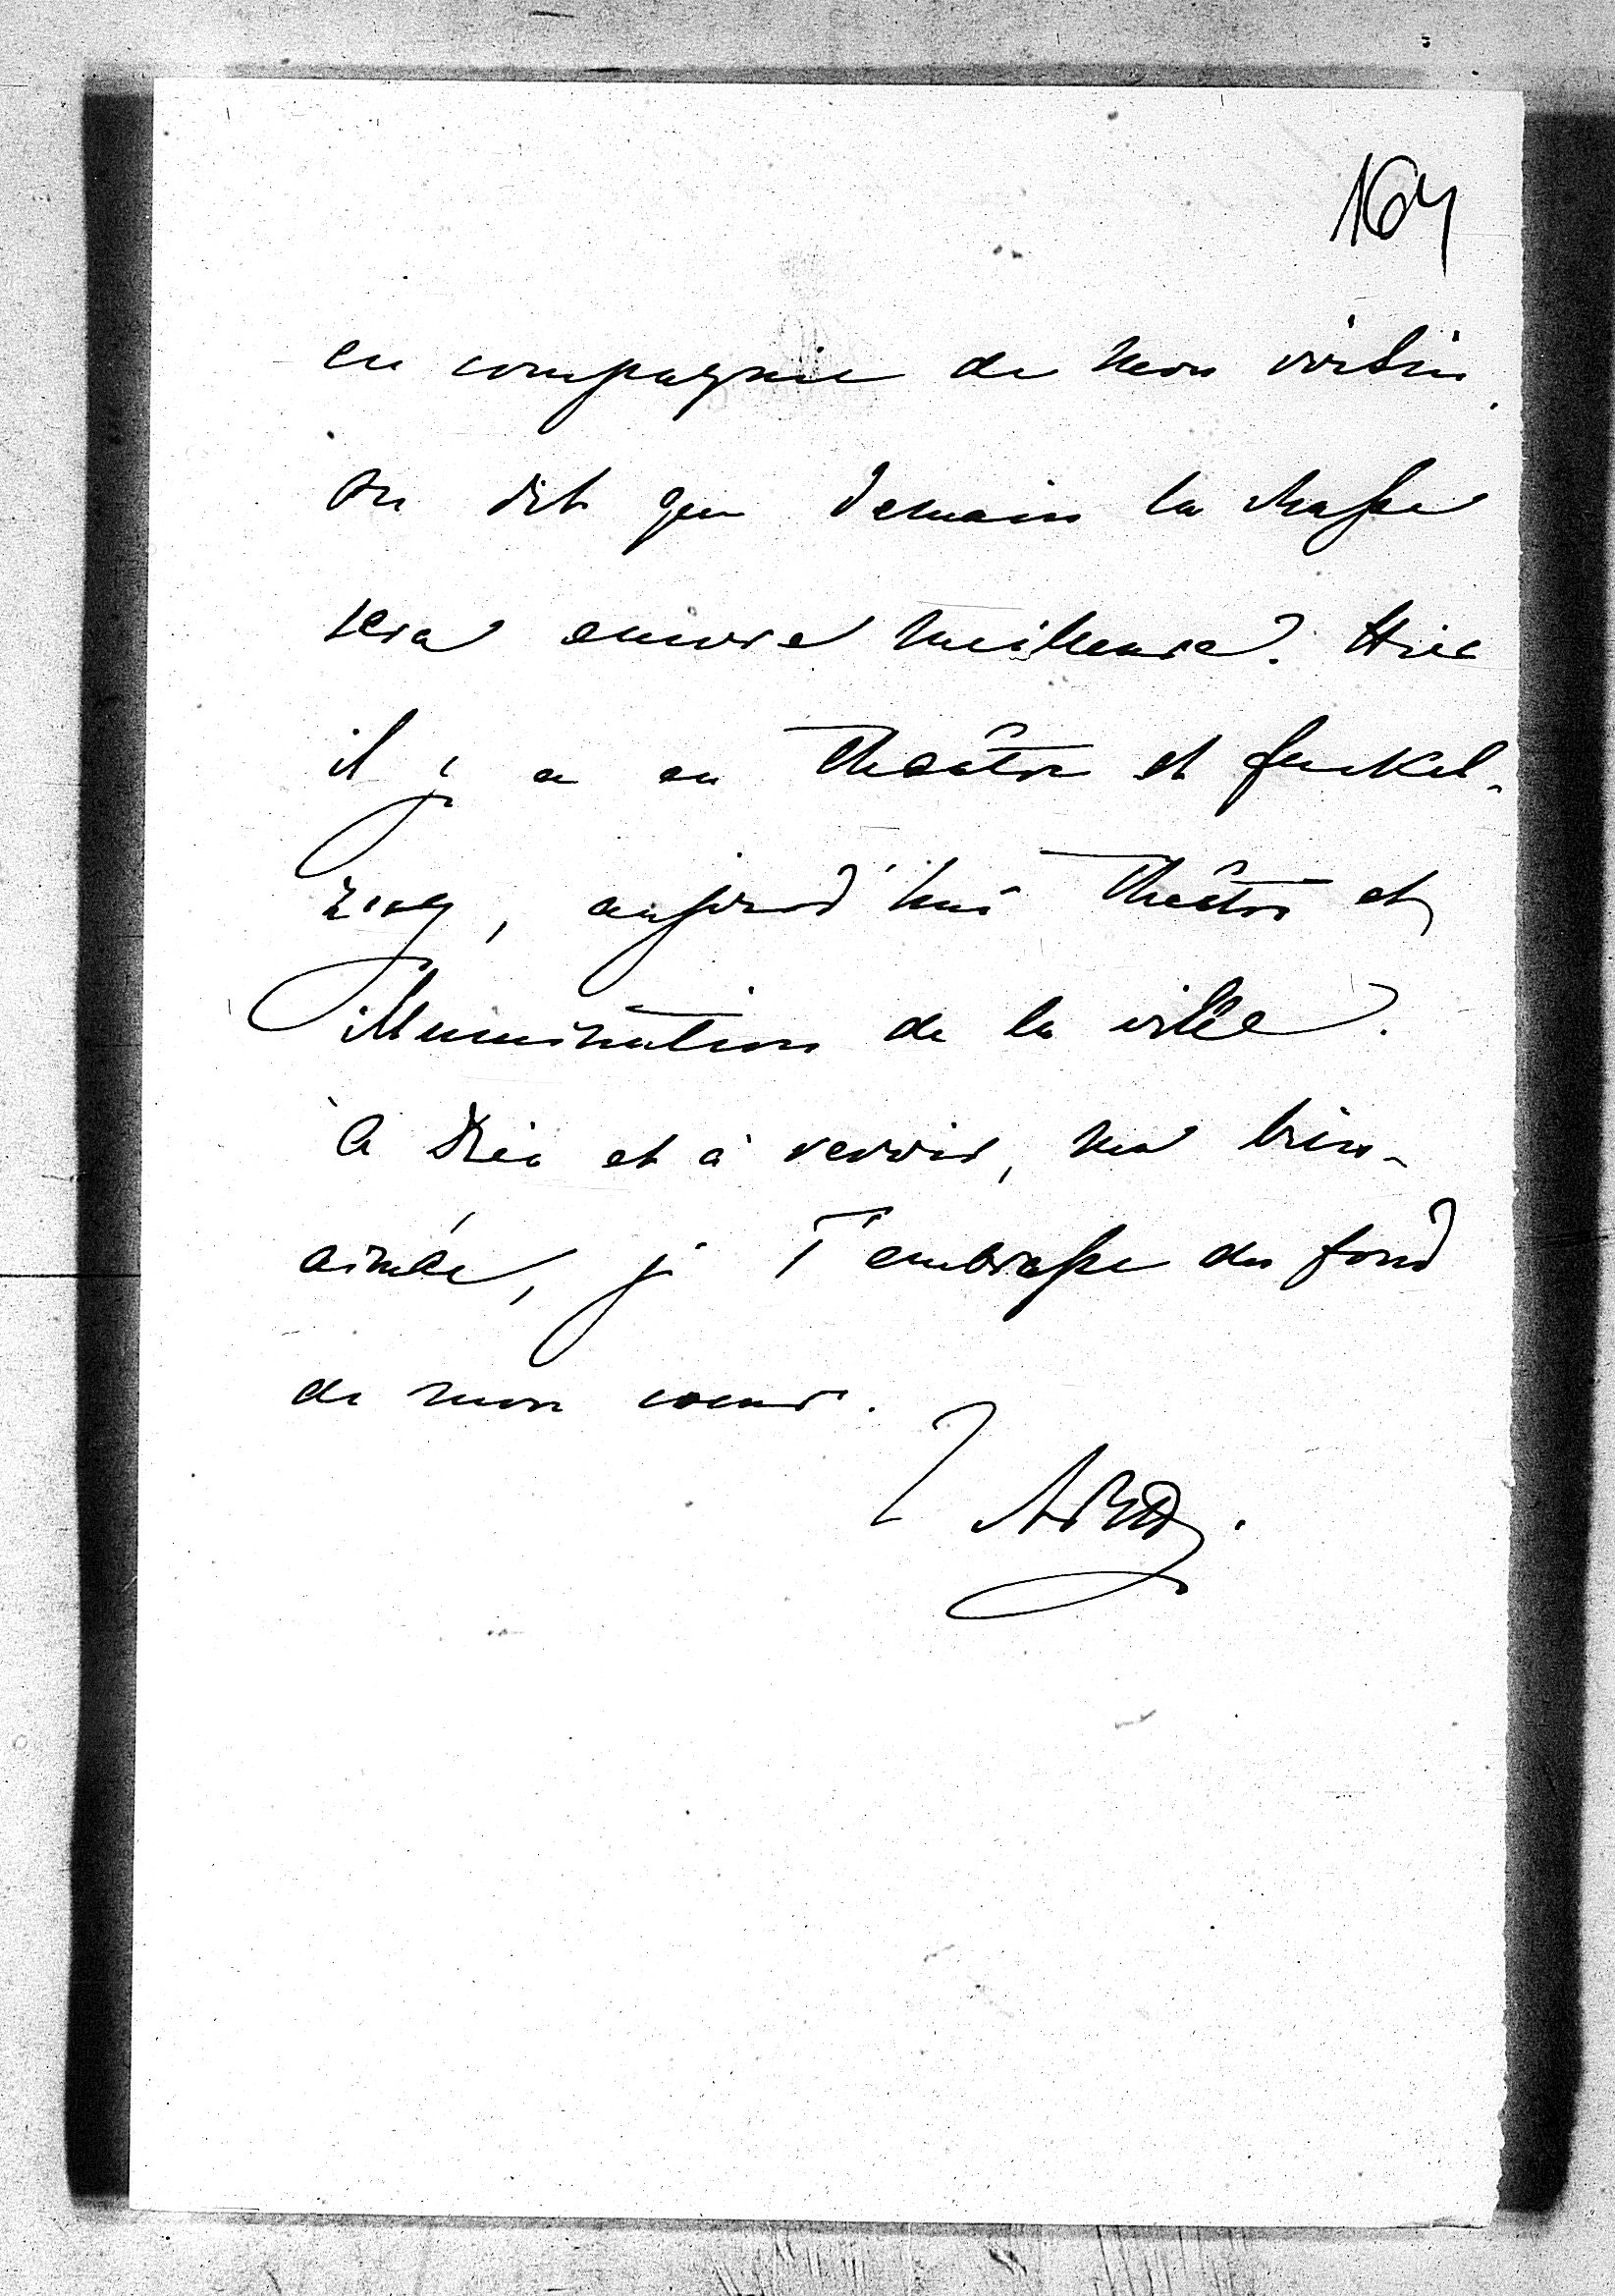 164
en compagnie de mon voisin.
On dit que demain la chasse
sera encore meilleure. Hier
il y a eu théâtre et fackel-
zug, aujourd'hui théâtre et
illumination de la ville.
à Dieu et à revoir, ma bien-
aimée, je T'embrasse du fond
de mon coeur.